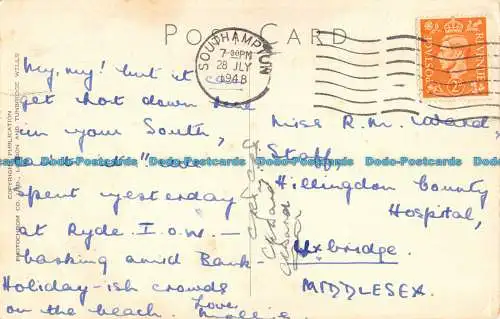 POST CARD
SOUTHAMPTON
7 30PM
28 JLY
1948
POSTAGE REVENUE
My, my! but it can
get hot down here
in your South,
ain't it" we
spent yesterday
at Ryde I.O.W. —
basking amid Bank-
Holiday-ish crowds
on the beach. Love,
Mollie.
Miss R.M. Ward,
Staff,
Hillingdon County
Hospital,
Uxbridge.
MIDDLESEX.
COPYRIGHT PUBLICATION
PHOTOCHROM CO. LTD., LONDON AND TUNBRIDGE WELLS
Dodo-Postcards Dodo-Postcards Dodo-Postcards Dodo-Postcards Dodo-Postcards